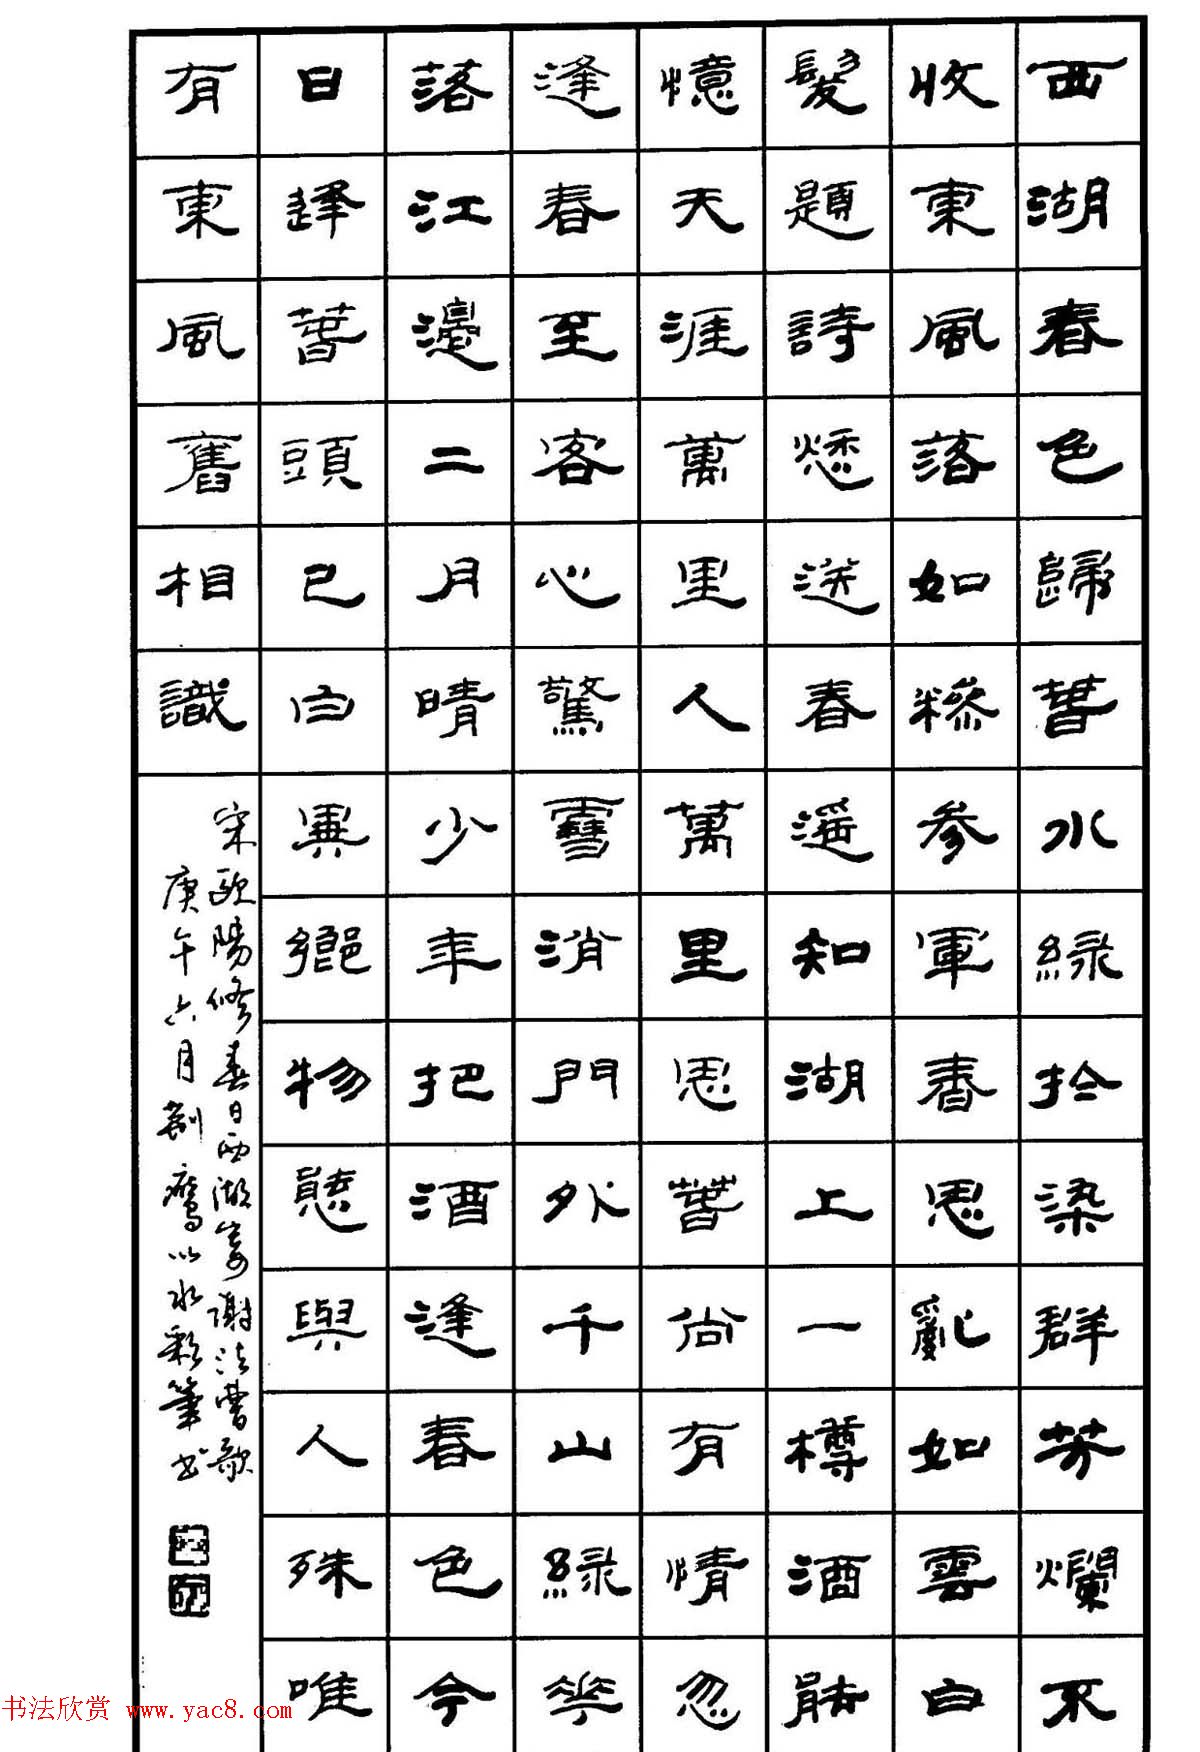 西湖春色歸春水綠扵染群芳爛不
收東風落如糝參軍春思亂如雲白
髮題詩愁送春遥知湖上一樽酒能
憶天涯萬里人萬里思春尚有情忽
逢春至客心驚雪消門外千山綠花
落江邊二月晴少年把酒逢春色今
日逢春頭已白異鄉物態與人殊唯
有東風舊相識
宋歐陽修春日西湖寄謝法曹歌
庚午六月荆鷹以水彩筆书
书法欣赏 www.yac8.com